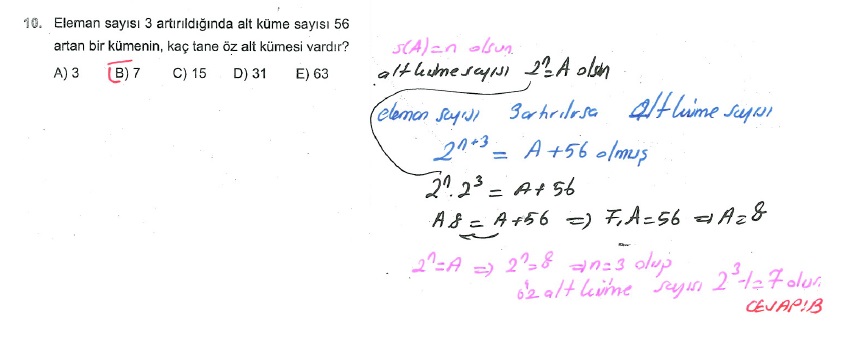 10. Eleman sayısı 3 artırıldığında alt küme sayısı 56
artan bir kümenin, kaç tane öz alt kümesi vardır?
A) 3 B) 7 C) 15 D) 31 E) 63
s(A)=n olsun.
alt küme sayısı 2ⁿ=A olsun
eleman sayısı 3 artırılırsa alt küme sayısı
2ⁿ⁺³ = A+56 olmuş
2ⁿ.2³ = A+56
A8 = A+56 => 7.A=56 => A=8
2ⁿ=A => 2ⁿ=8 => n=3 olup
öz alt küme sayısı 2³-1=7 olur.
CEVAP:B